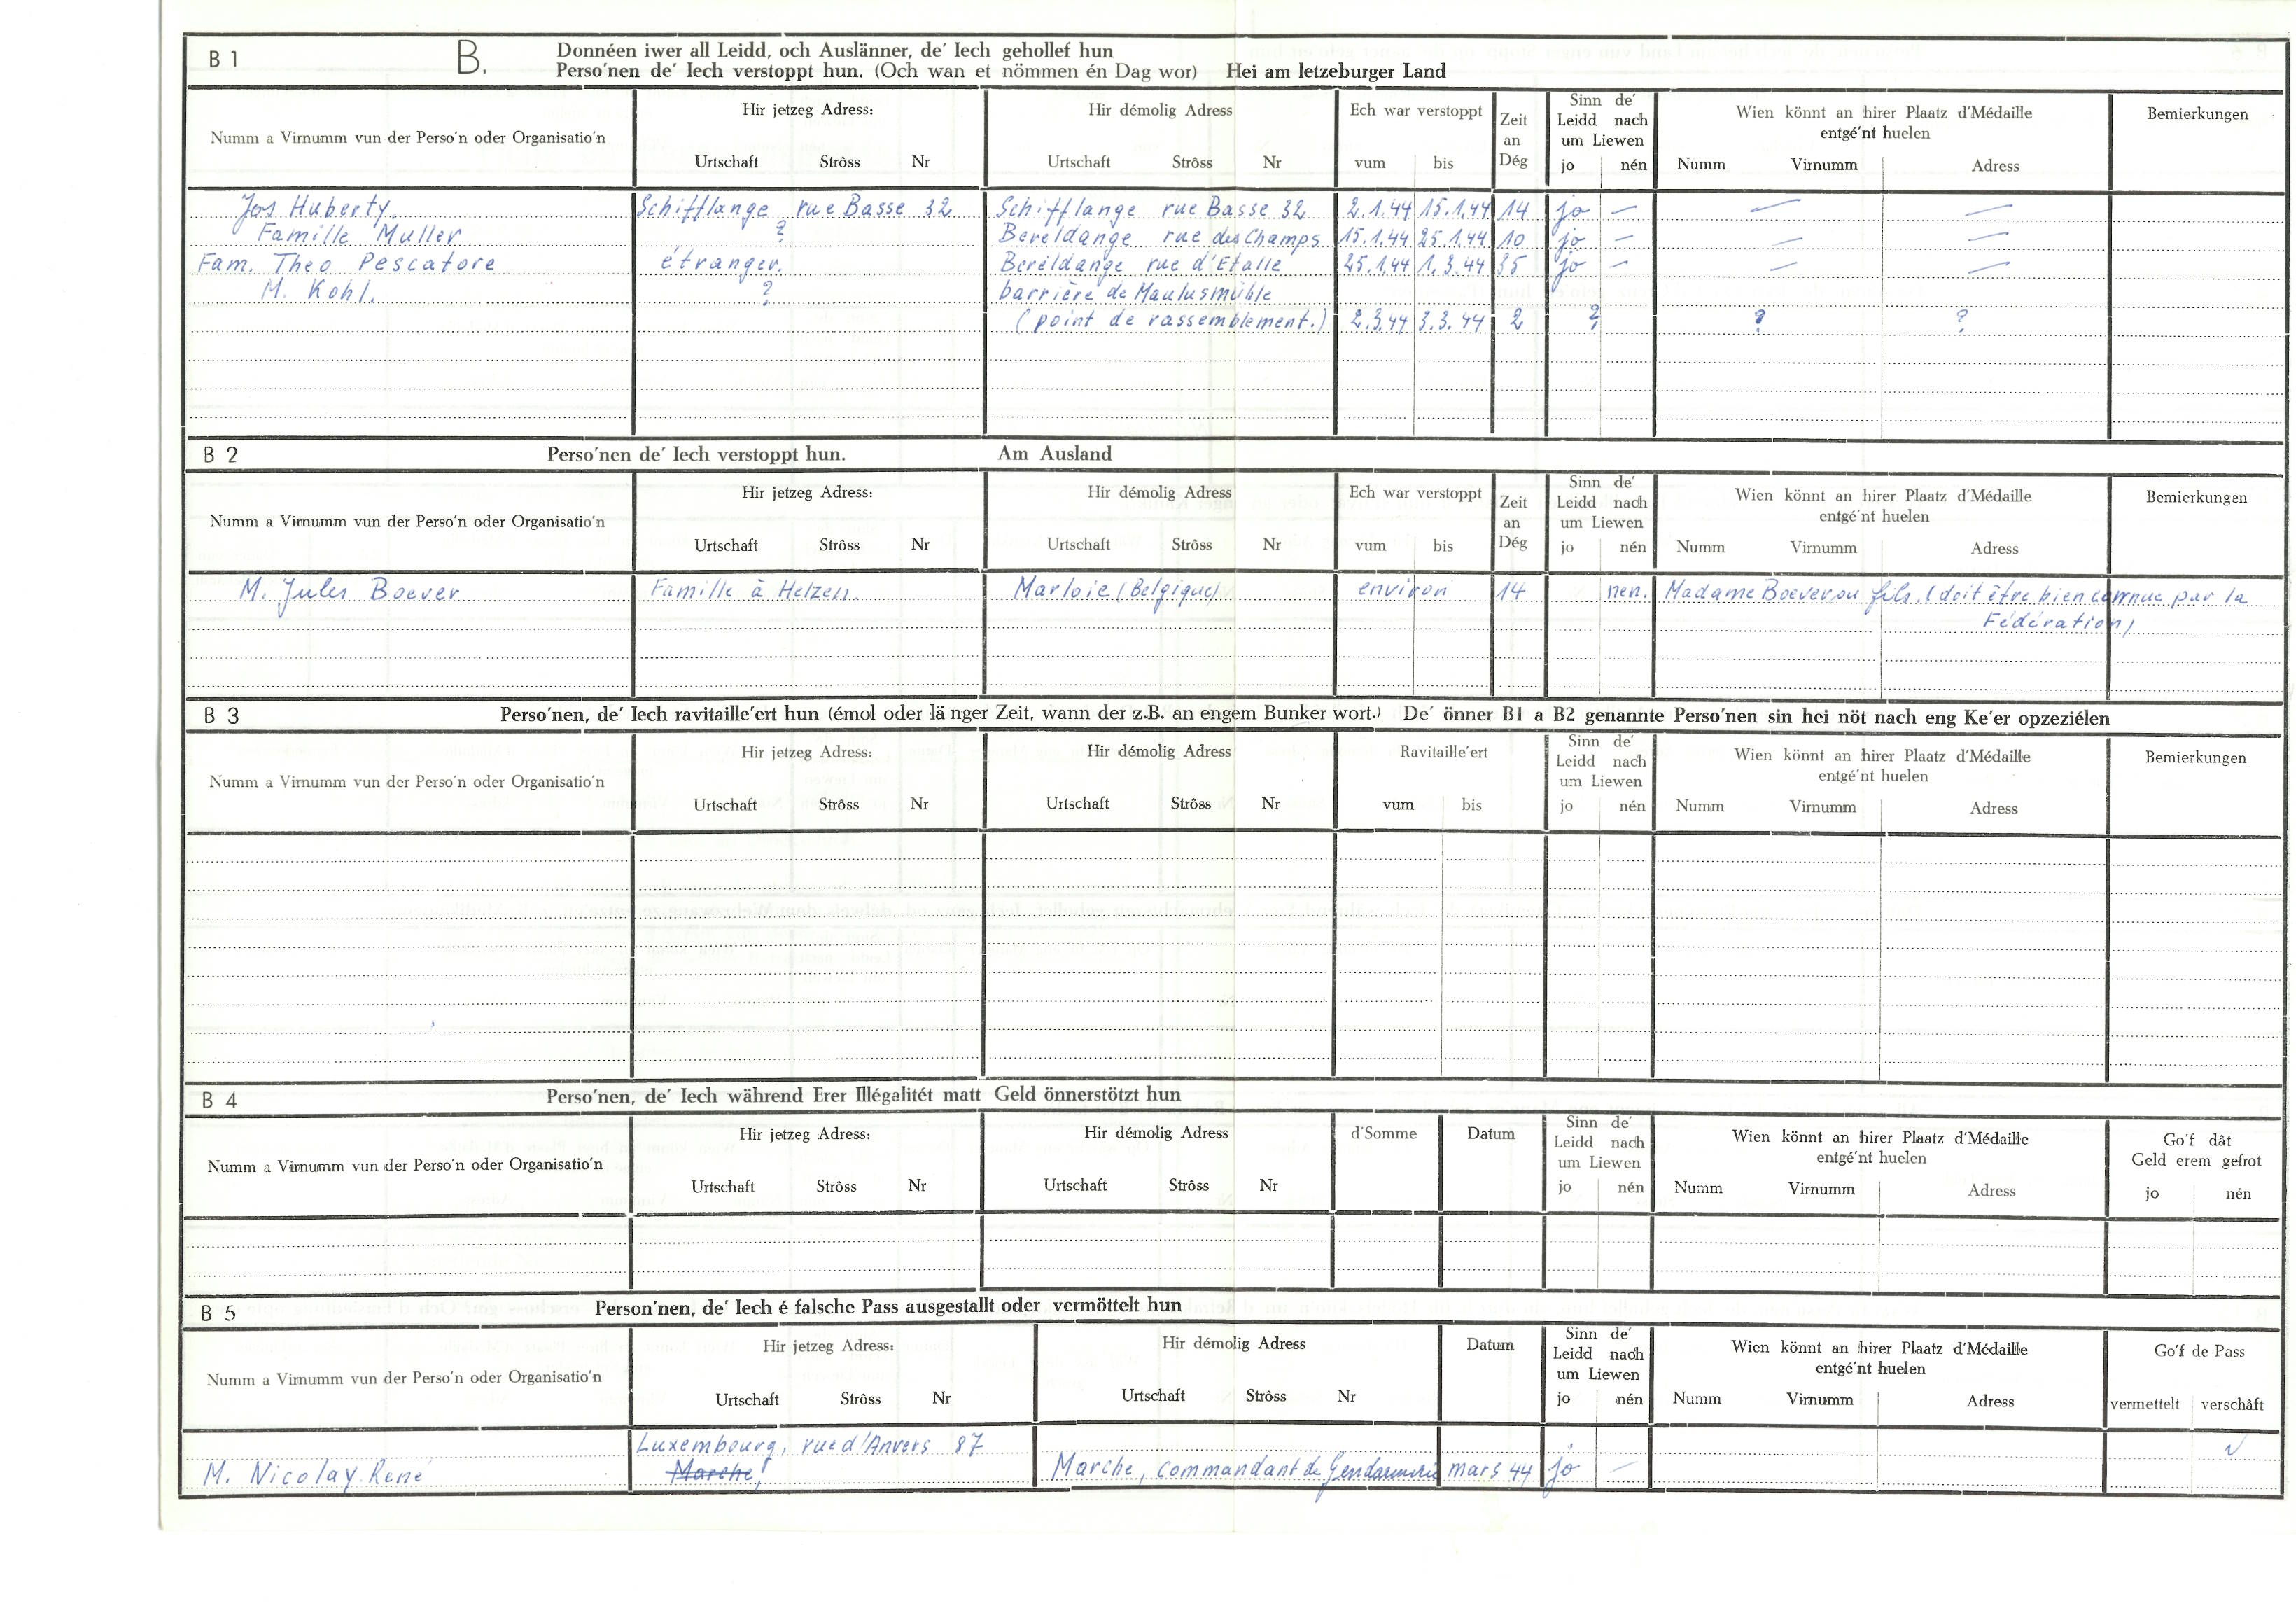 B 1 B. Donnéen iwer all Leidd, och Auslänner, de' Iech gehollef hun
Perso'nen de' Iech verstoppt hun. (Och wan et nömmen én Dag wor) Hei am letzeburger Land
Numm a Virnumm vun der Perso'n oder Organisatio'n
Hir jetzeg Adress:
Urtschaft Strôss Nr
Hir démolig Adress
Urtschaft Strôss Nr
Ech war verstoppt
vum bis
Zeit
an
Dég
Sinn de'
Leidd nach
um Liewen
jo nén
Wien könnt an hirer Plaatz d'Médaille
entgé'nt huelen
Numm Virnumm Adress
Bemierkungen
Jos Huberty. Schifflange rue Basse 32 Schifflange rue Basse 32 2.1.44 15.1.44 14 jo — — —
Famille Muller ? Bereldange rue des Champs 15.1.44 25.1.44 10 jo — — —
Fam. Theo Pescatore étranger. Bereldange rue d'Etalle 25.1.44 1.3.44 35 jo — — —
M. Kohl. ? barrière de Maulusmühle
(point de rassemblement.) 2.3.44 3.3.44 2 ? ? ?
B 2 Perso'nen de' Iech verstoppt hun. Am Ausland
Numm a Virnumm vun der Perso'n oder Organisatio'n
Hir jetzeg Adress:
Urtschaft Strôss Nr
Hir démolig Adress
Urtschaft Strôss Nr
Ech war verstoppt
vum bis
Zeit
an
Dég
Sinn de'
Leidd nach
um Liewen
jo nén
Wien könnt an hirer Plaatz d'Médaille
entgé'nt huelen
Numm Virnumm Adress
Bemierkungen
M. Jules Boever Famille à Helzen. Marloie (Belgique) environ 14 nen. Madame Boever ou fils. (doit être bien connue par la
Fédération)
B 3 Perso'nen, de' Iech ravitaille'ert hun (émol oder lä nger Zeit, wann der z.B. an engem Bunker wort.) De' önner B1 a B2 genannte Perso'nen sin hei nöt nach eng Ke'er opzeziélen
Numm a Virnumm vun der Perso'n oder Organisatio'n
Hir jetzeg Adress:
Urtschaft Strôss Nr
Hir démolig Adress
Urtschaft Strôss Nr
Ravitaille'ert
vum bis
Sinn de'
Leidd nach
um Liewen
jo nén
Wien könnt an hirer Plaatz d'Médaille
entgé'nt huelen
Numm Virnumm Adress
Bemierkungen
B 4 Perso'nen, de' Iech während Erer Illégalitét matt Geld önnerstötzt hun
Numm a Virnumm vun der Perso'n oder Organisatio'n
Hir jetzeg Adress:
Urtschaft Strôss Nr
Hir démolig Adress
Urtschaft Strôss Nr
d'Somme
Datum
Sinn de'
Leidd nach
um Liewen
jo nén
Wien könnt an hirer Plaatz d'Médaille
entgé'nt huelen
Numm Virnumm Adress
Go'f dât
Geld erem gefrot
jo nén
B 5 Person'nen, de' Iech é falsche Pass ausgestallt oder vermöttelt hun
Numm a Virnumm vun der Perso'n oder Organisatio'n
Hir jetzeg Adress:
Urtschaft Strôss Nr
Hir démolig Adress
Urtschaft Strôss Nr
Datum
Sinn de'
Leidd nach
um Liewen
jo nén
Wien könnt an hirer Plaatz d'Médaille
entgé'nt huelen
Numm Virnumm Adress
Go'f de Pass
vermettelt verschâft
Luxembourg, rue d'Anvers 87
M. Nicolay René Marche, Marche, commandant de Gendarmerie mars 44 jo —